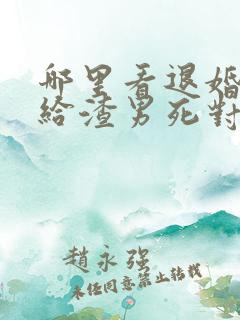 那里看退婚
給渣男死對
趙永强
未任同意禁止轉載